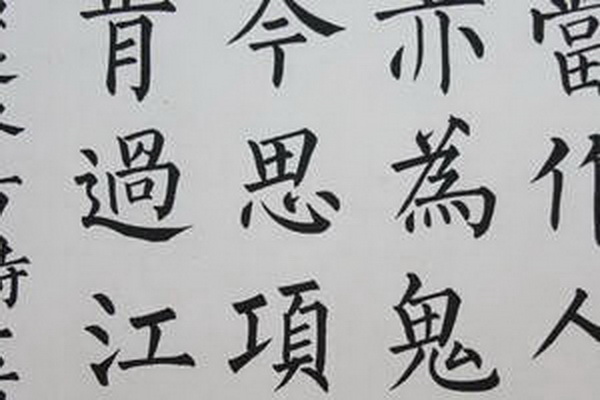 當作人
亦為鬼
今思項
肯過江